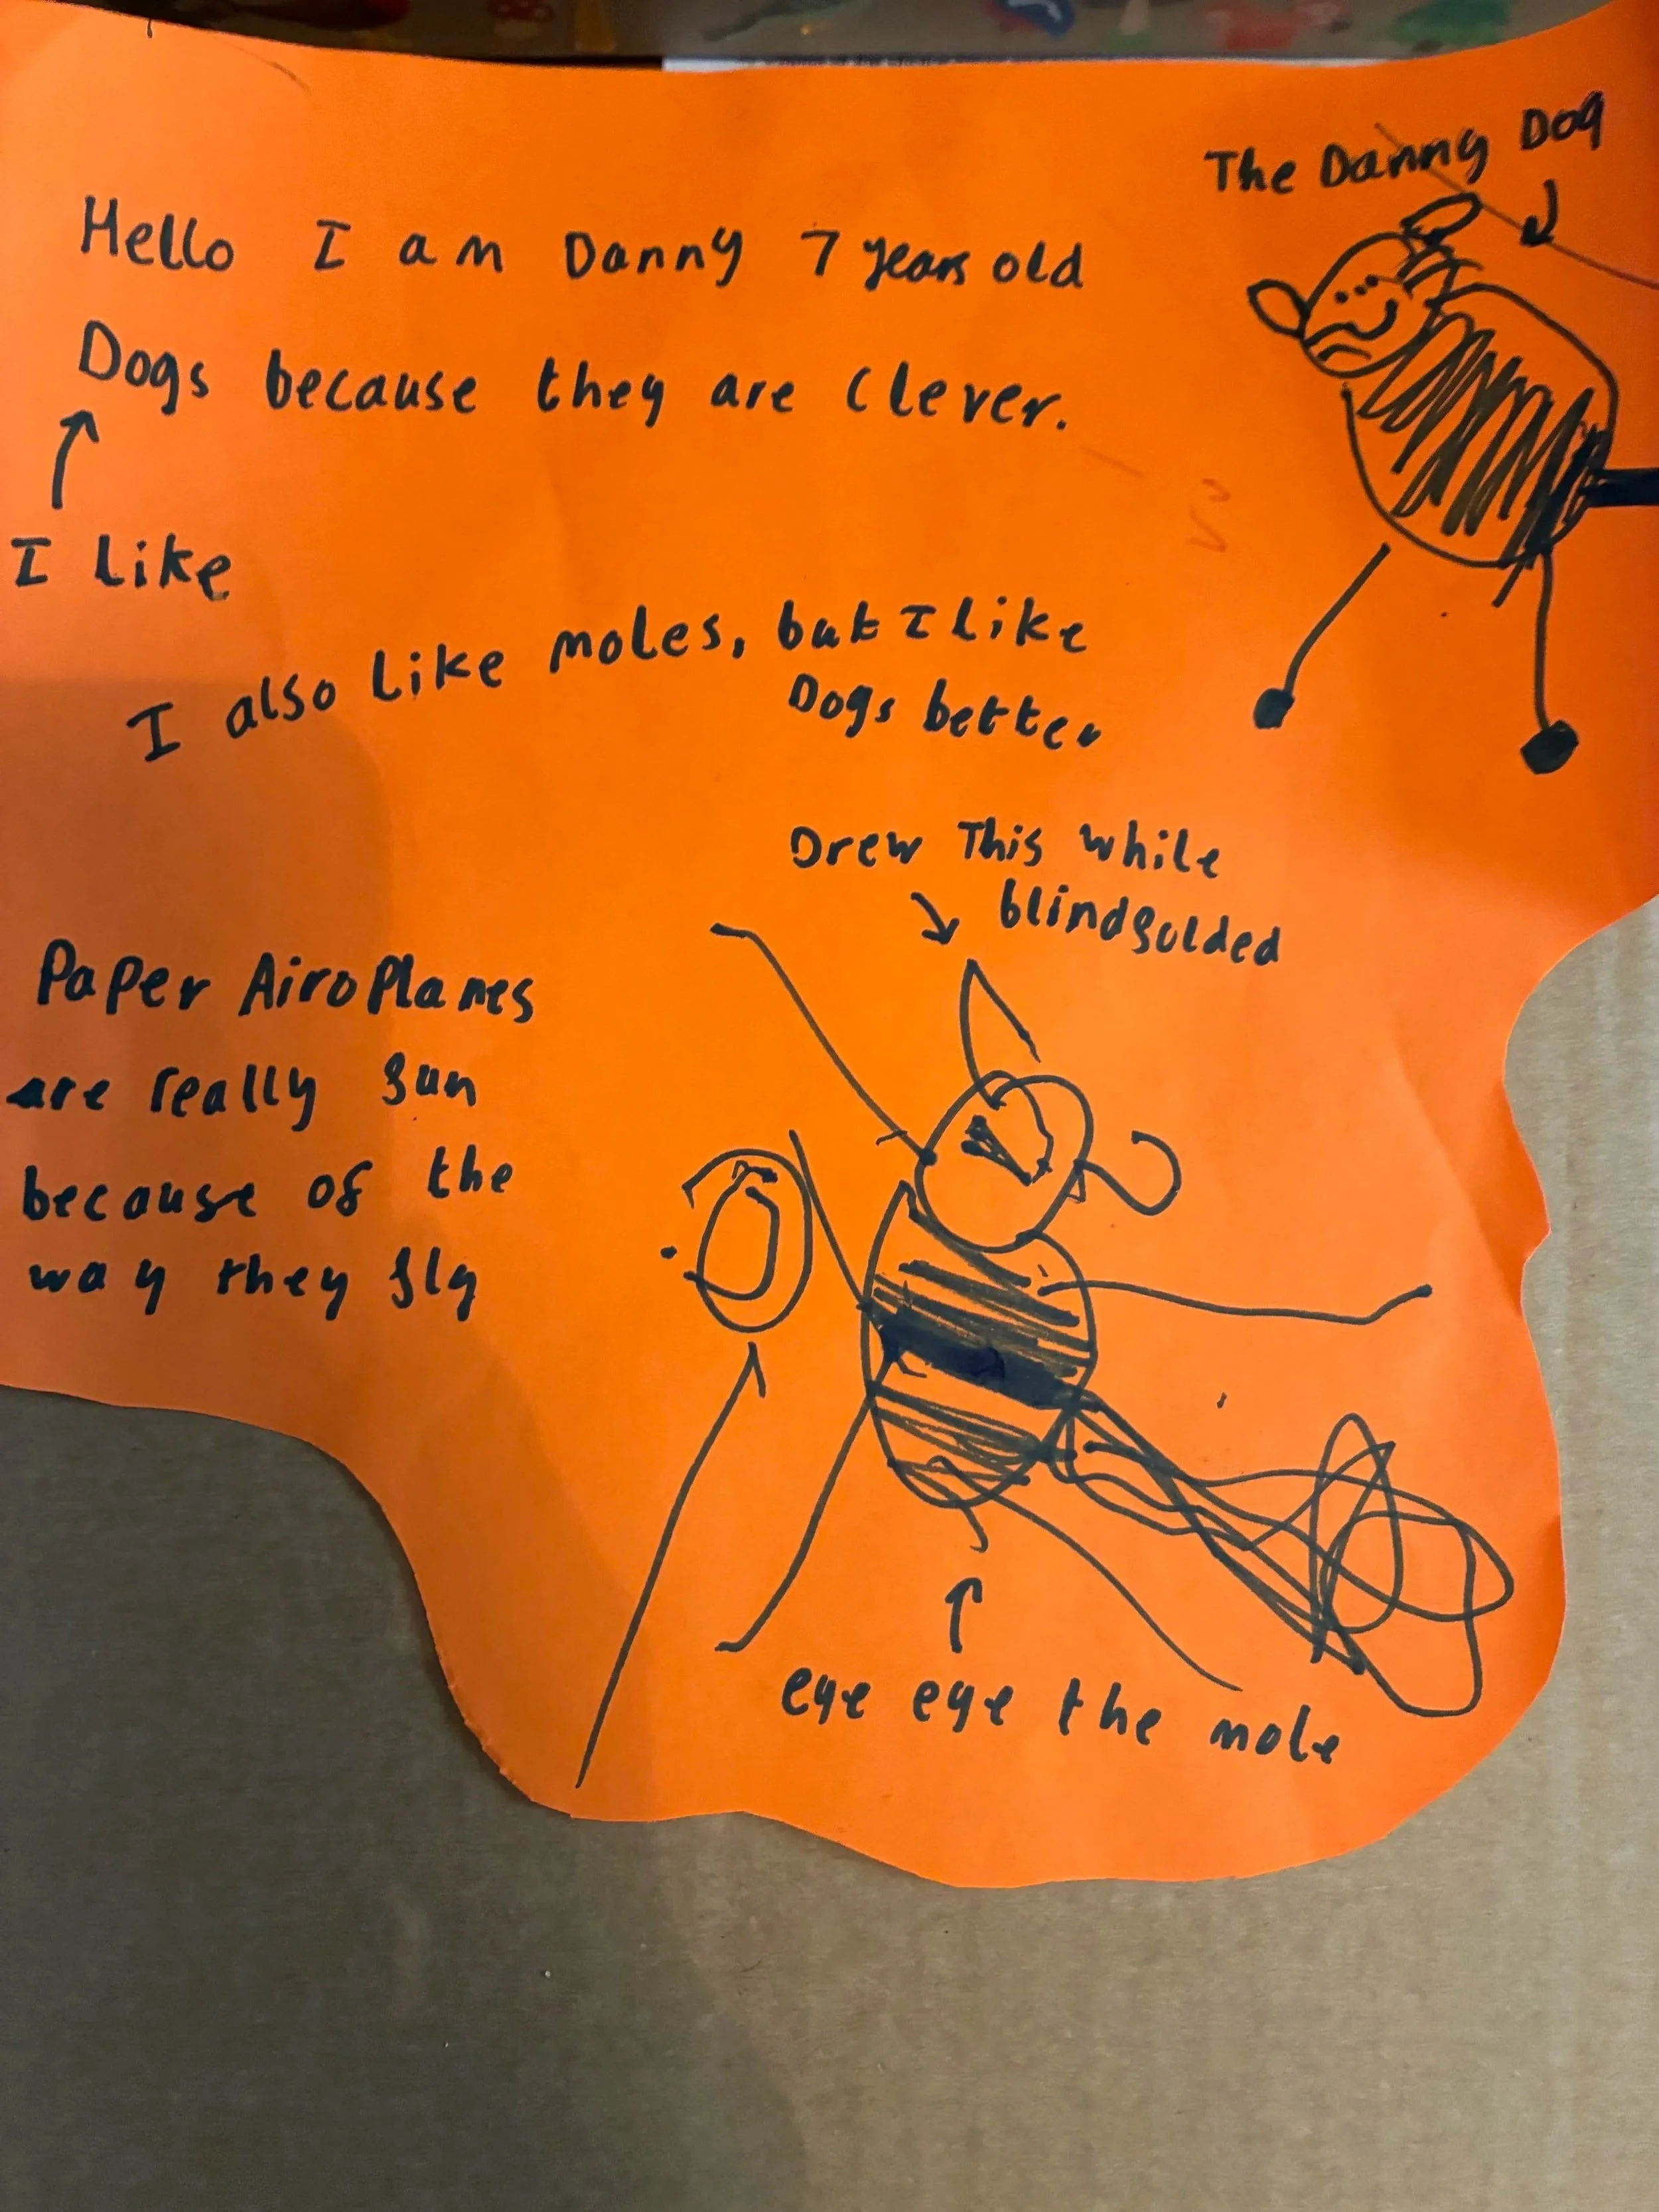 The Danny Dog
Hello I am Danny 7 years old
Dogs because they are clever.
I like
I also like moles, but I like
Dogs better
Drew This while
blindfolded
Paper AiroPlanes
are really fun
because of the
way they fly
eye eye the mole